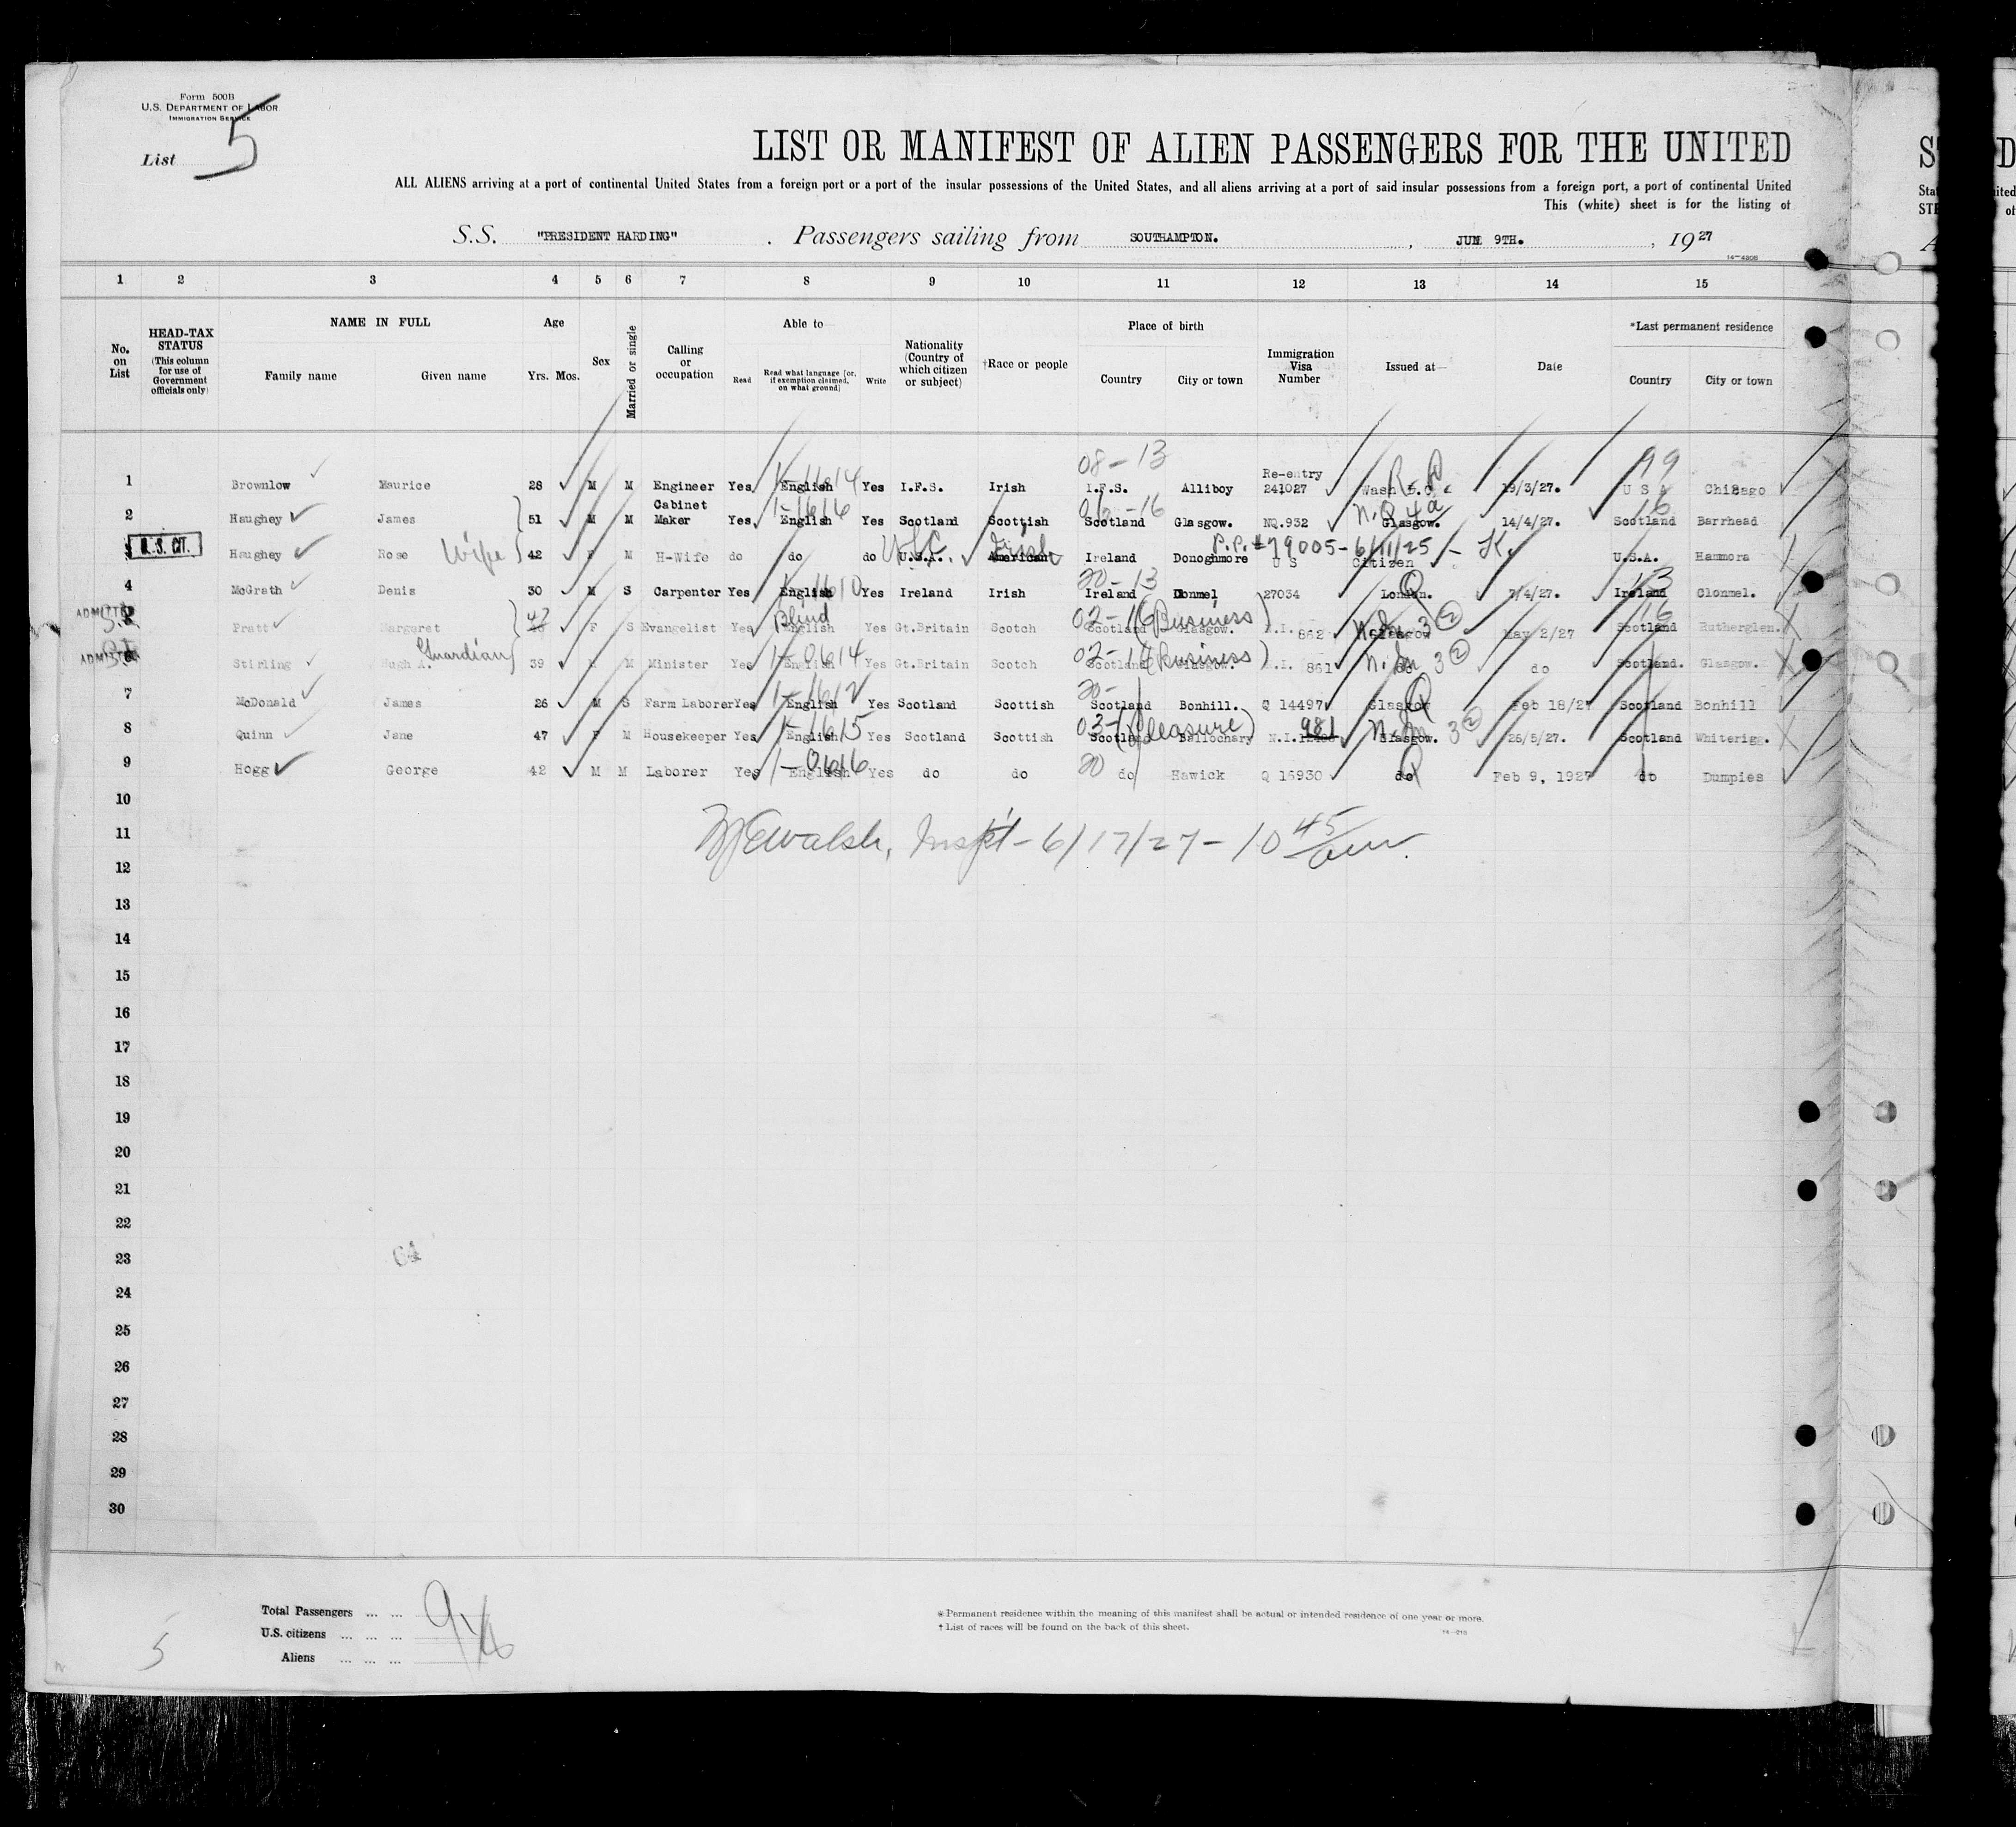 Form 500B
U.S. DEPARTMENT OF LABOR
IMMIGRATION SERVICE
List 5
LIST OR MANIFEST OF ALIEN PASSENGERS FOR THE UNITED
ALL ALIENS arriving at a port of continental United States from a foreign port or a port of the insular possessions of the United States, and all aliens arriving at a port of said insular possessions from a foreign port, a port of continental United
This (white) sheet is for the listing of
S.S. "PRESIDENT HARDING" . Passengers sailing from SOUTHAMPTON. , JUNE 9TH. , 1927
14-4808
1 2 3 4 5 6 7 8 9 10 11 12 13 14 15
No. on List
HEAD-TAX STATUS (This column for use of Government officials only)
NAME IN FULL
Family name Given name
Age
Yrs. Mos.
Sex
Married or single
Calling or occupation
Able to—
Read
Read what language [or, if exemption claimed, on what ground]
Write
Nationality (Country of which citizen or subject)
†Race or people
Place of birth
Country City or town
Immigration Visa Number
Issued at—
Date
*Last permanent residence
Country City or town
08-13 99
1 Brownlow Maurice 28 M M Engineer Yes English Yes I.F.S. Irish I.F.S. Alliboy Re-entry 241027 Wash D.C. 19/3/27. U S A Chicago
2 Haughey James 51 M M Cabinet Maker Yes English Yes Scotland Scottish Scotland Glasgow. NQ.932 Glasgow. 14/4/27. Scotland Barrhead
U.S. CIT.
3 Haughey Rose Wife 42 F M H-Wife do do do U.S.A. American Irish Ireland Donoghmore U S Citizen U.S.A. Hammora
P.P. #79005-6/11/25 - K.
4 McGrath Denis 30 M S Carpenter Yes English Yes Ireland Irish Ireland Clonmel 27034 London. 7/4/27. Ireland Clonmel.
ADMITTED
5 Pratt Margaret 47 F S Evangelist Yes English Blind Yes Gt.Britain Scotch Scotland Glasgow. (Business) N.I. 862 Glasgow May 2/27 Scotland Rutherglen.
ADMITTED
6 Stirling Hugh A. Guardian 39 M M Minister Yes English Yes Gt.Britain Scotch Scotland Glasgow. (Business) N.I. 861 do do Scotland. Glasgow.
7 McDonald James 26 M S Farm Laborer Yes English Yes Scotland Scottish Scotland Bonhill. Q 14497 Glasgow Feb 18/27 Scotland Bonhill
8 Quinn Jane 47 F M Housekeeper Yes English Yes Scotland Scottish Scotland Bellochary (Pleasure) N.I. 981 Glasgow. 26/5/27. Scotland Whiterigg.
9 Hogg George 42 M M Laborer Yes English Yes do do do Hawick Q 16930 do Feb 9, 1927 do Dumpies
10
11
12
Walsh, Inspt - 6/17/27 - 10 45 am.
13
14
15
16
17
18
19
20
21
22
23
24
25
26
27
28
29
30
Total Passengers ... ...
U.S. citizens ... ... ...
Aliens ... ... ...
5
* Permanent residence within the meaning of this manifest shall be actual or intended residence of one year or more.
† List of races will be found on the back of this sheet.